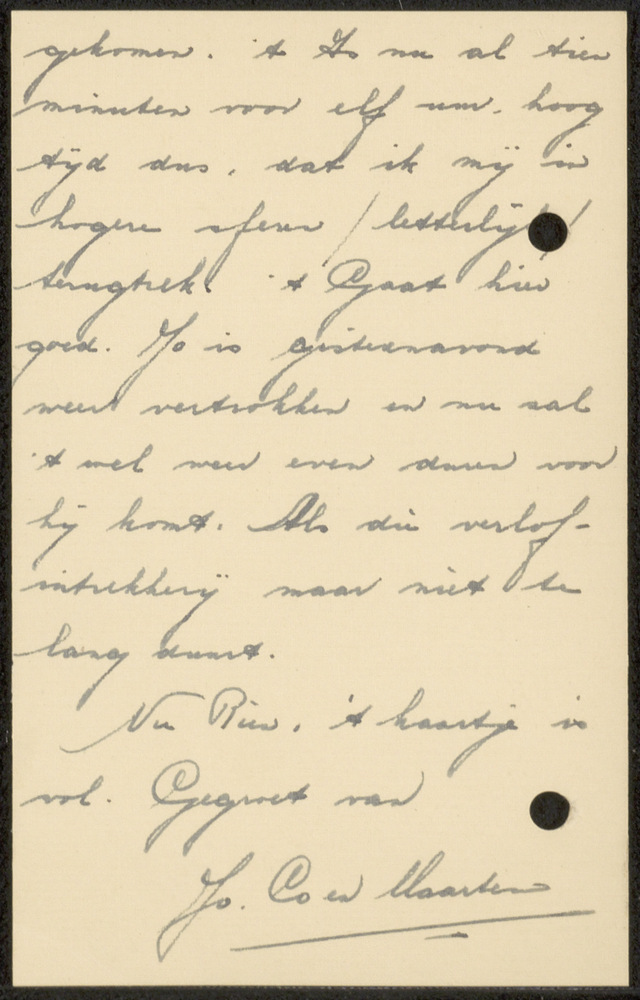 gekomen. 't Is nu al tien
minuten voor elf uur, hoog
tijd dus, dat ik mij in
hogere sferen (letterlijk!)
terugtrek. 't Gaat hier
goed. Jo is gisterenavond
weer vertrokken en nu sal
't wel weer even duren voor
hij komt. Als die verlof-
intrekkerij maar niet te
lang duurt.
Nu Rien, 't kaartje is
vol. Gegroet van
Jo. Co en Maarten